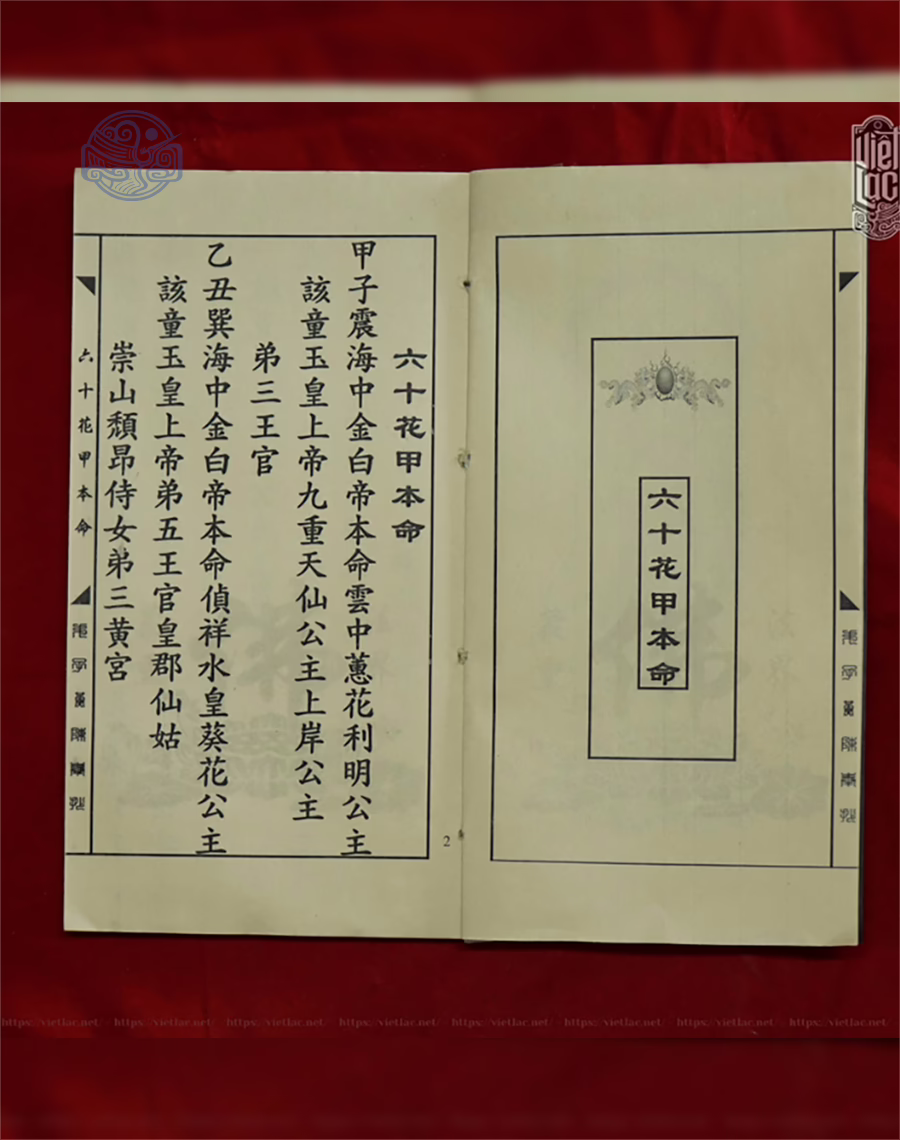 Việt
Lạc
六十花甲本命
六十花甲本命
甲子震海中金白帝本命雲中蕙花利明公主
該童玉皇上帝九重天仙公主上岸公主
弟三王官
乙丑巽海中金白帝本命偵祥水皇葵花公主
該童玉皇上帝弟五王官皇郡仙姑
崇山頹昂侍女弟三黄宮
六十花甲本命
2
https://vietlac.net/ - https://vietlac.net/ - https://vietlac.net/ - https://vietlac.net/ - https://vietlac.net/ - https://vietlac.net/ - https://vietlac.net/ - https://vietlac.net/